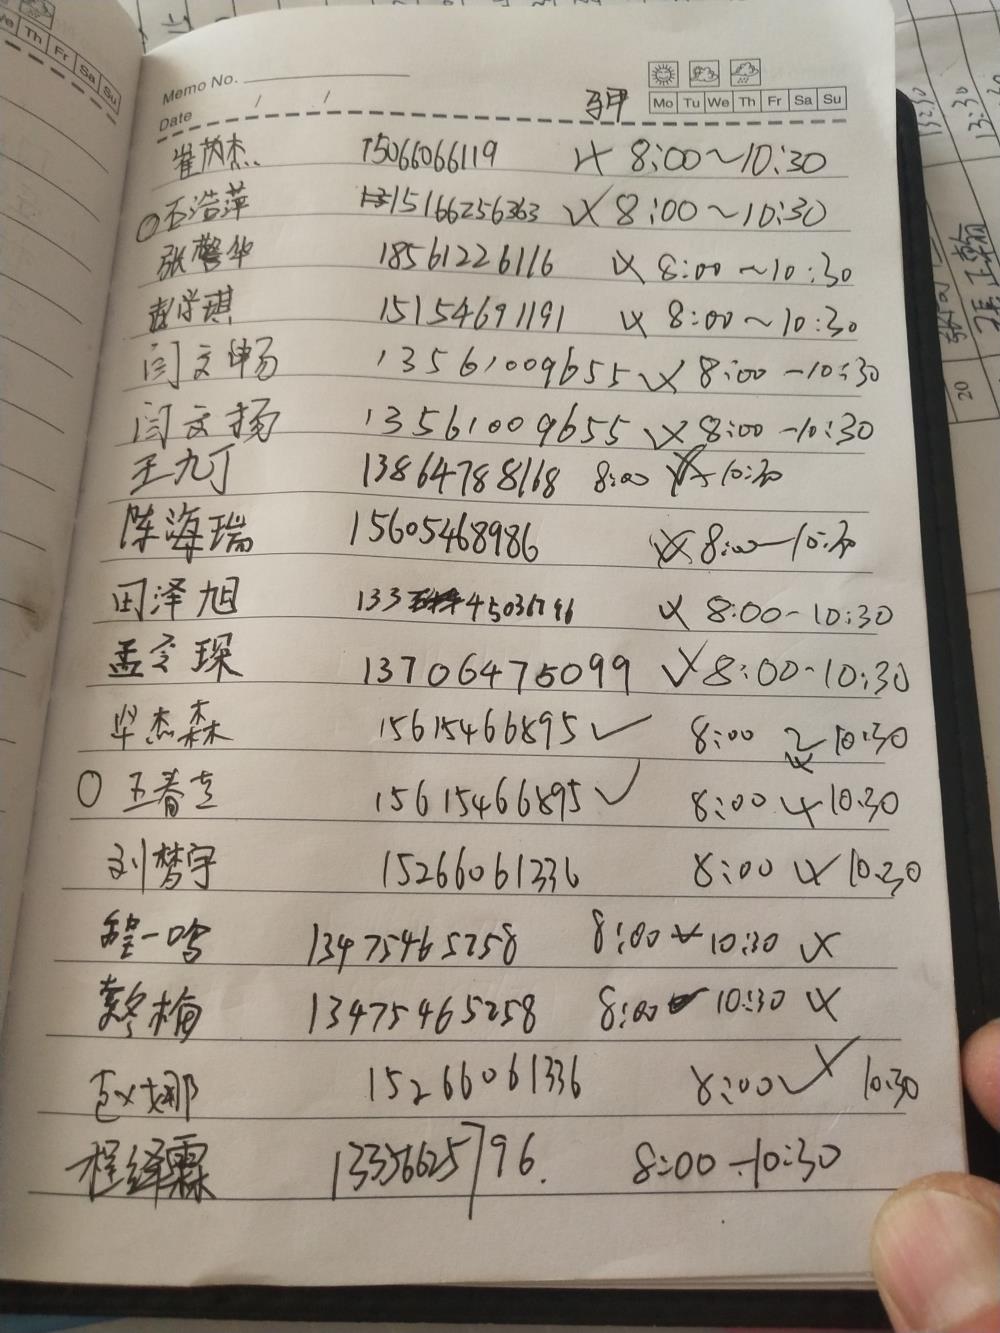 We Th Fr Sa Su
Memo No.
Date / /
Mo Tu We Th Fr Sa Su
崔芮杰 15066066119 8:00~10:30
石浩萍 15166256363 8:00~10:30
张警华 18561226116 8:00~10:30
赵学琪 15154691191 8:00~10:30
闫文畅 13561009655 8:00-10:30
闫文扬 13561009655 8:00-10:30
王九丁 13864788168 8:00 10:30
陈海瑞 15605468986 8:00-10:30
田泽旭 133 45036796 8:00-10:30
孟令琛 13706475099 ✓ 8:00-10:30
毕杰森 15615466895 ✓ 8:00 ~ 10:30
王春 15615466895 ✓ 8:00 10:30
刘梦宇 15266061336 8:00 10:30
一鸣 13475465258 8:00 10:30
梅 13475465258 8:00 10:30
赵娜 15266061336 8:00 10:30
程绎霖 13356625796. 8:00-10:30
13:30
20